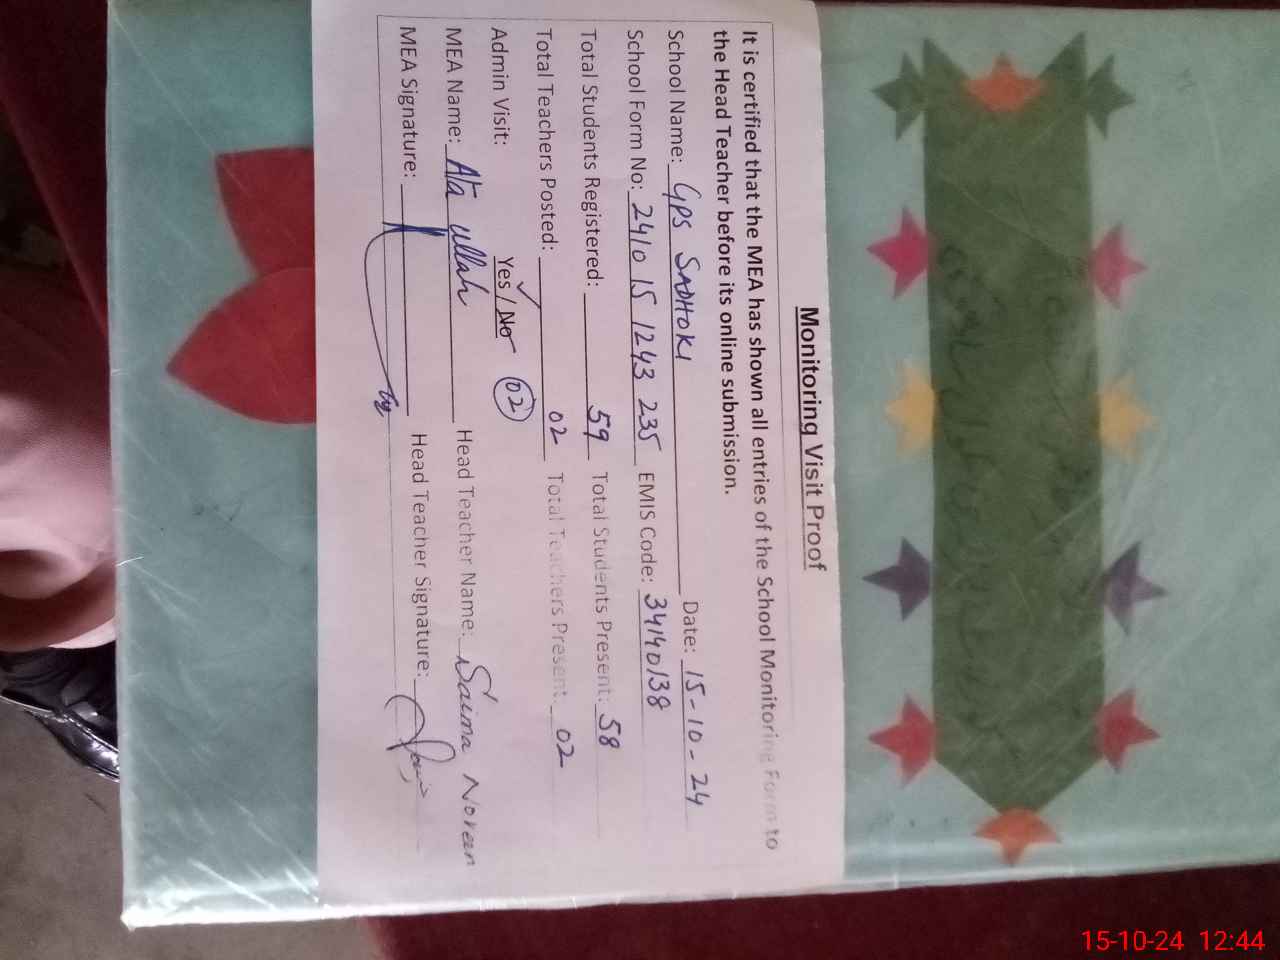 Monitoring Visit Proof
It is certified that the MEA has shown all entries of the School Monitoring Form to
the Head Teacher before its online submission.
School Name: GPS SADHOKI Date: 15-10-24
School Form No: 2410 15 1243 235 EMIS Code: 34140138
Total Students Registered: 59 Total Students Present: 58
Total Teachers Posted: 02 Total Teachers Present: 02
Admin Visit: Yes ✓ / No 02
MEA Name: Ata ullah Head Teacher Name: Saima Noreen
MEA Signature: Head Teacher Signature:
15-10-24 12:44